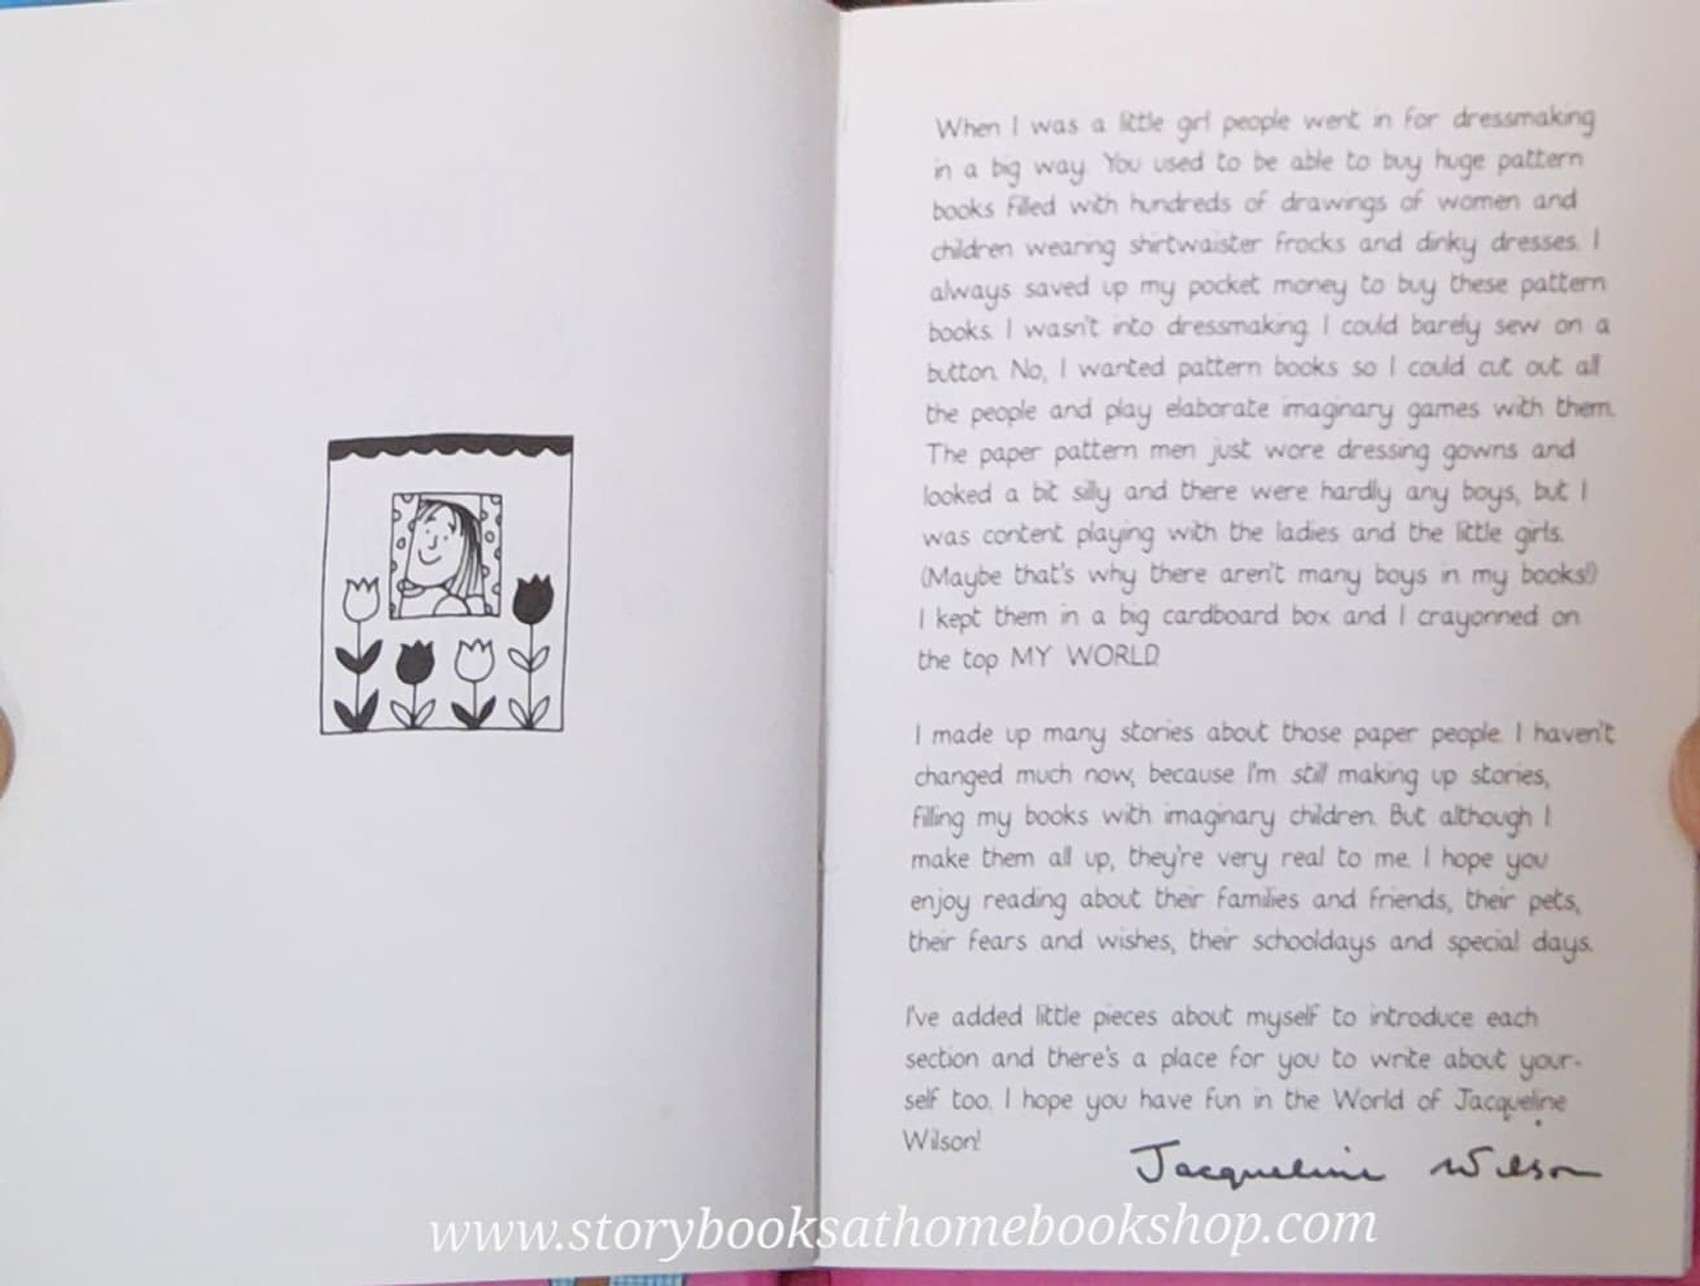 When I was a little girl people went in for dressmaking
in a big way. You used to be able to buy huge pattern
books filled with hundreds of drawings of women and
children wearing shirtwaister frocks and dinky dresses. I
always saved up my pocket money to buy these pattern
books. I wasn't into dressmaking. I could barely sew on a
button. No, I wanted pattern books so I could cut out all
the people and play elaborate imaginary games with them.
The paper pattern men just wore dressing gowns and
looked a bit silly and there were hardly any boys, but I
was content playing with the ladies and the little girls.
(Maybe that's why there aren't many boys in my books!)
I kept them in a big cardboard box and I crayonned on
the top MY WORLD.
I made up many stories about those paper people. I haven't
changed much now, because I'm still making up stories,
filling my books with imaginary children. But although I
make them all up, they're very real to me. I hope you
enjoy reading about their families and friends, their pets,
their fears and wishes, their schooldays and special days.
I've added little pieces about myself to introduce each
section and there's a place for you to write about your-
self too. I hope you have fun in the World of Jacqueline
Wilson!
Jacqueline Wilson
www.storybooksathomebookshop.com